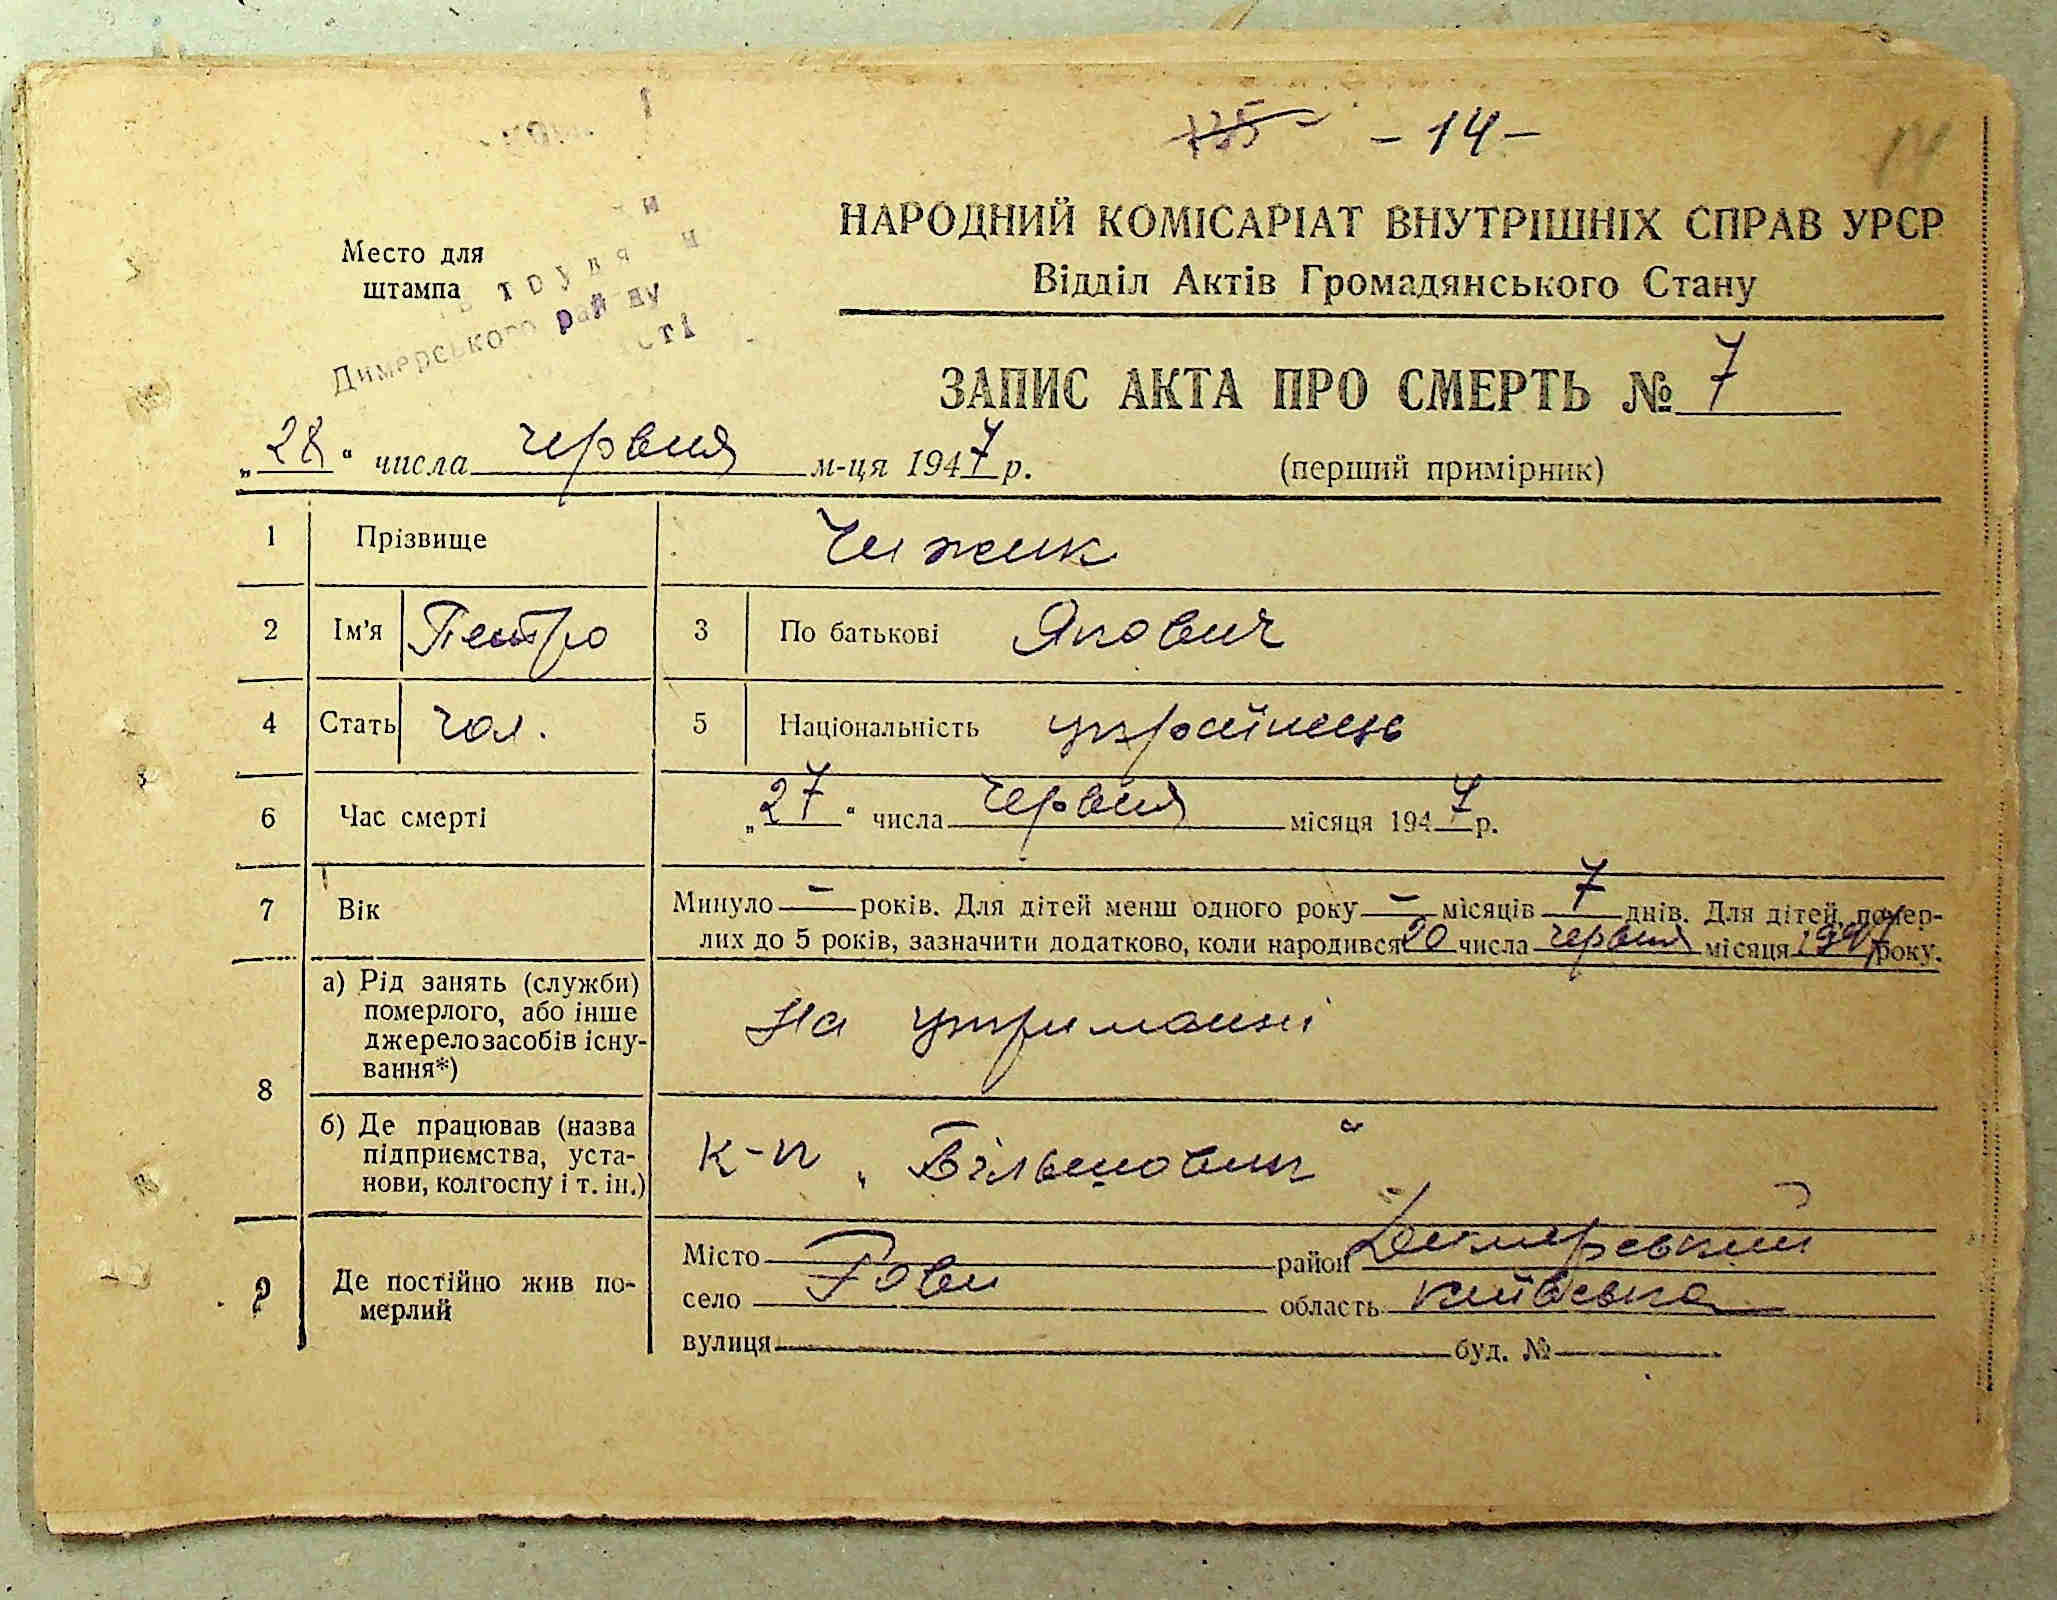 135 - 14 -
14
Место для
штампа
Димерського району
НАРОДНИЙ КОМІСАРІАТ ВНУТРІШНІХ СПРАВ УРСР
Відділ Актів Громадянського Стану
ЗАПИС АКТА ПРО СМЕРТЬ № 7
„28“ числа червня м-ця 1947 р.
(перший примірник)
1 Прізвище Чижик
2 Ім'я Петро 3 По батькові Якович
4 Стать чол. 5 Національність українець
6 Час смерті „27“ числа червня місяця 1947 р.
7 Вік Минуло — років. Для дітей менш одного року — місяців 7 днів. Для дітей, помер-
лих до 5 років, зазначити додатково, коли народився 20 числа червня місяця 1947 року.
8 а) Рід занять (служби)
померлого, або інше
джерело засобів існу-
вання*)
на утриманні
б) Де працював (назва
підприємства, уста-
нови, колгоспу і т. ін.)
к-п „Більшовик“
9 Де постійно жив по-
мерлий
Місто район Димерський
село Рови область Київська
вулиця буд. №